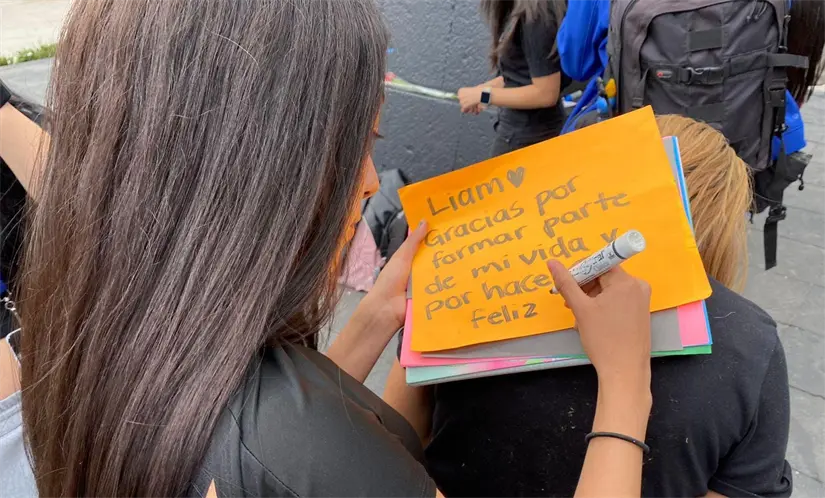 Liam♥
Gracias por
formar parte
de mi vida y
por hace
feliz